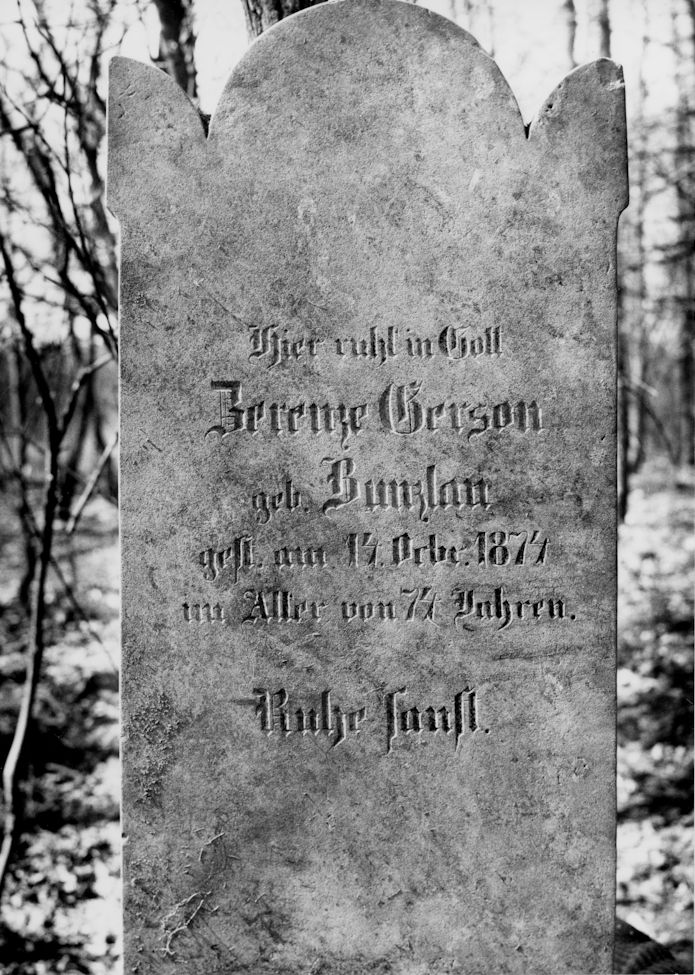 Hier ruht in Gott
Berenze Gerson
geb. Bunzlau
gest. am 14. Octbr. 1874
im Alter von 74 Jahren.
Ruhe sanft.